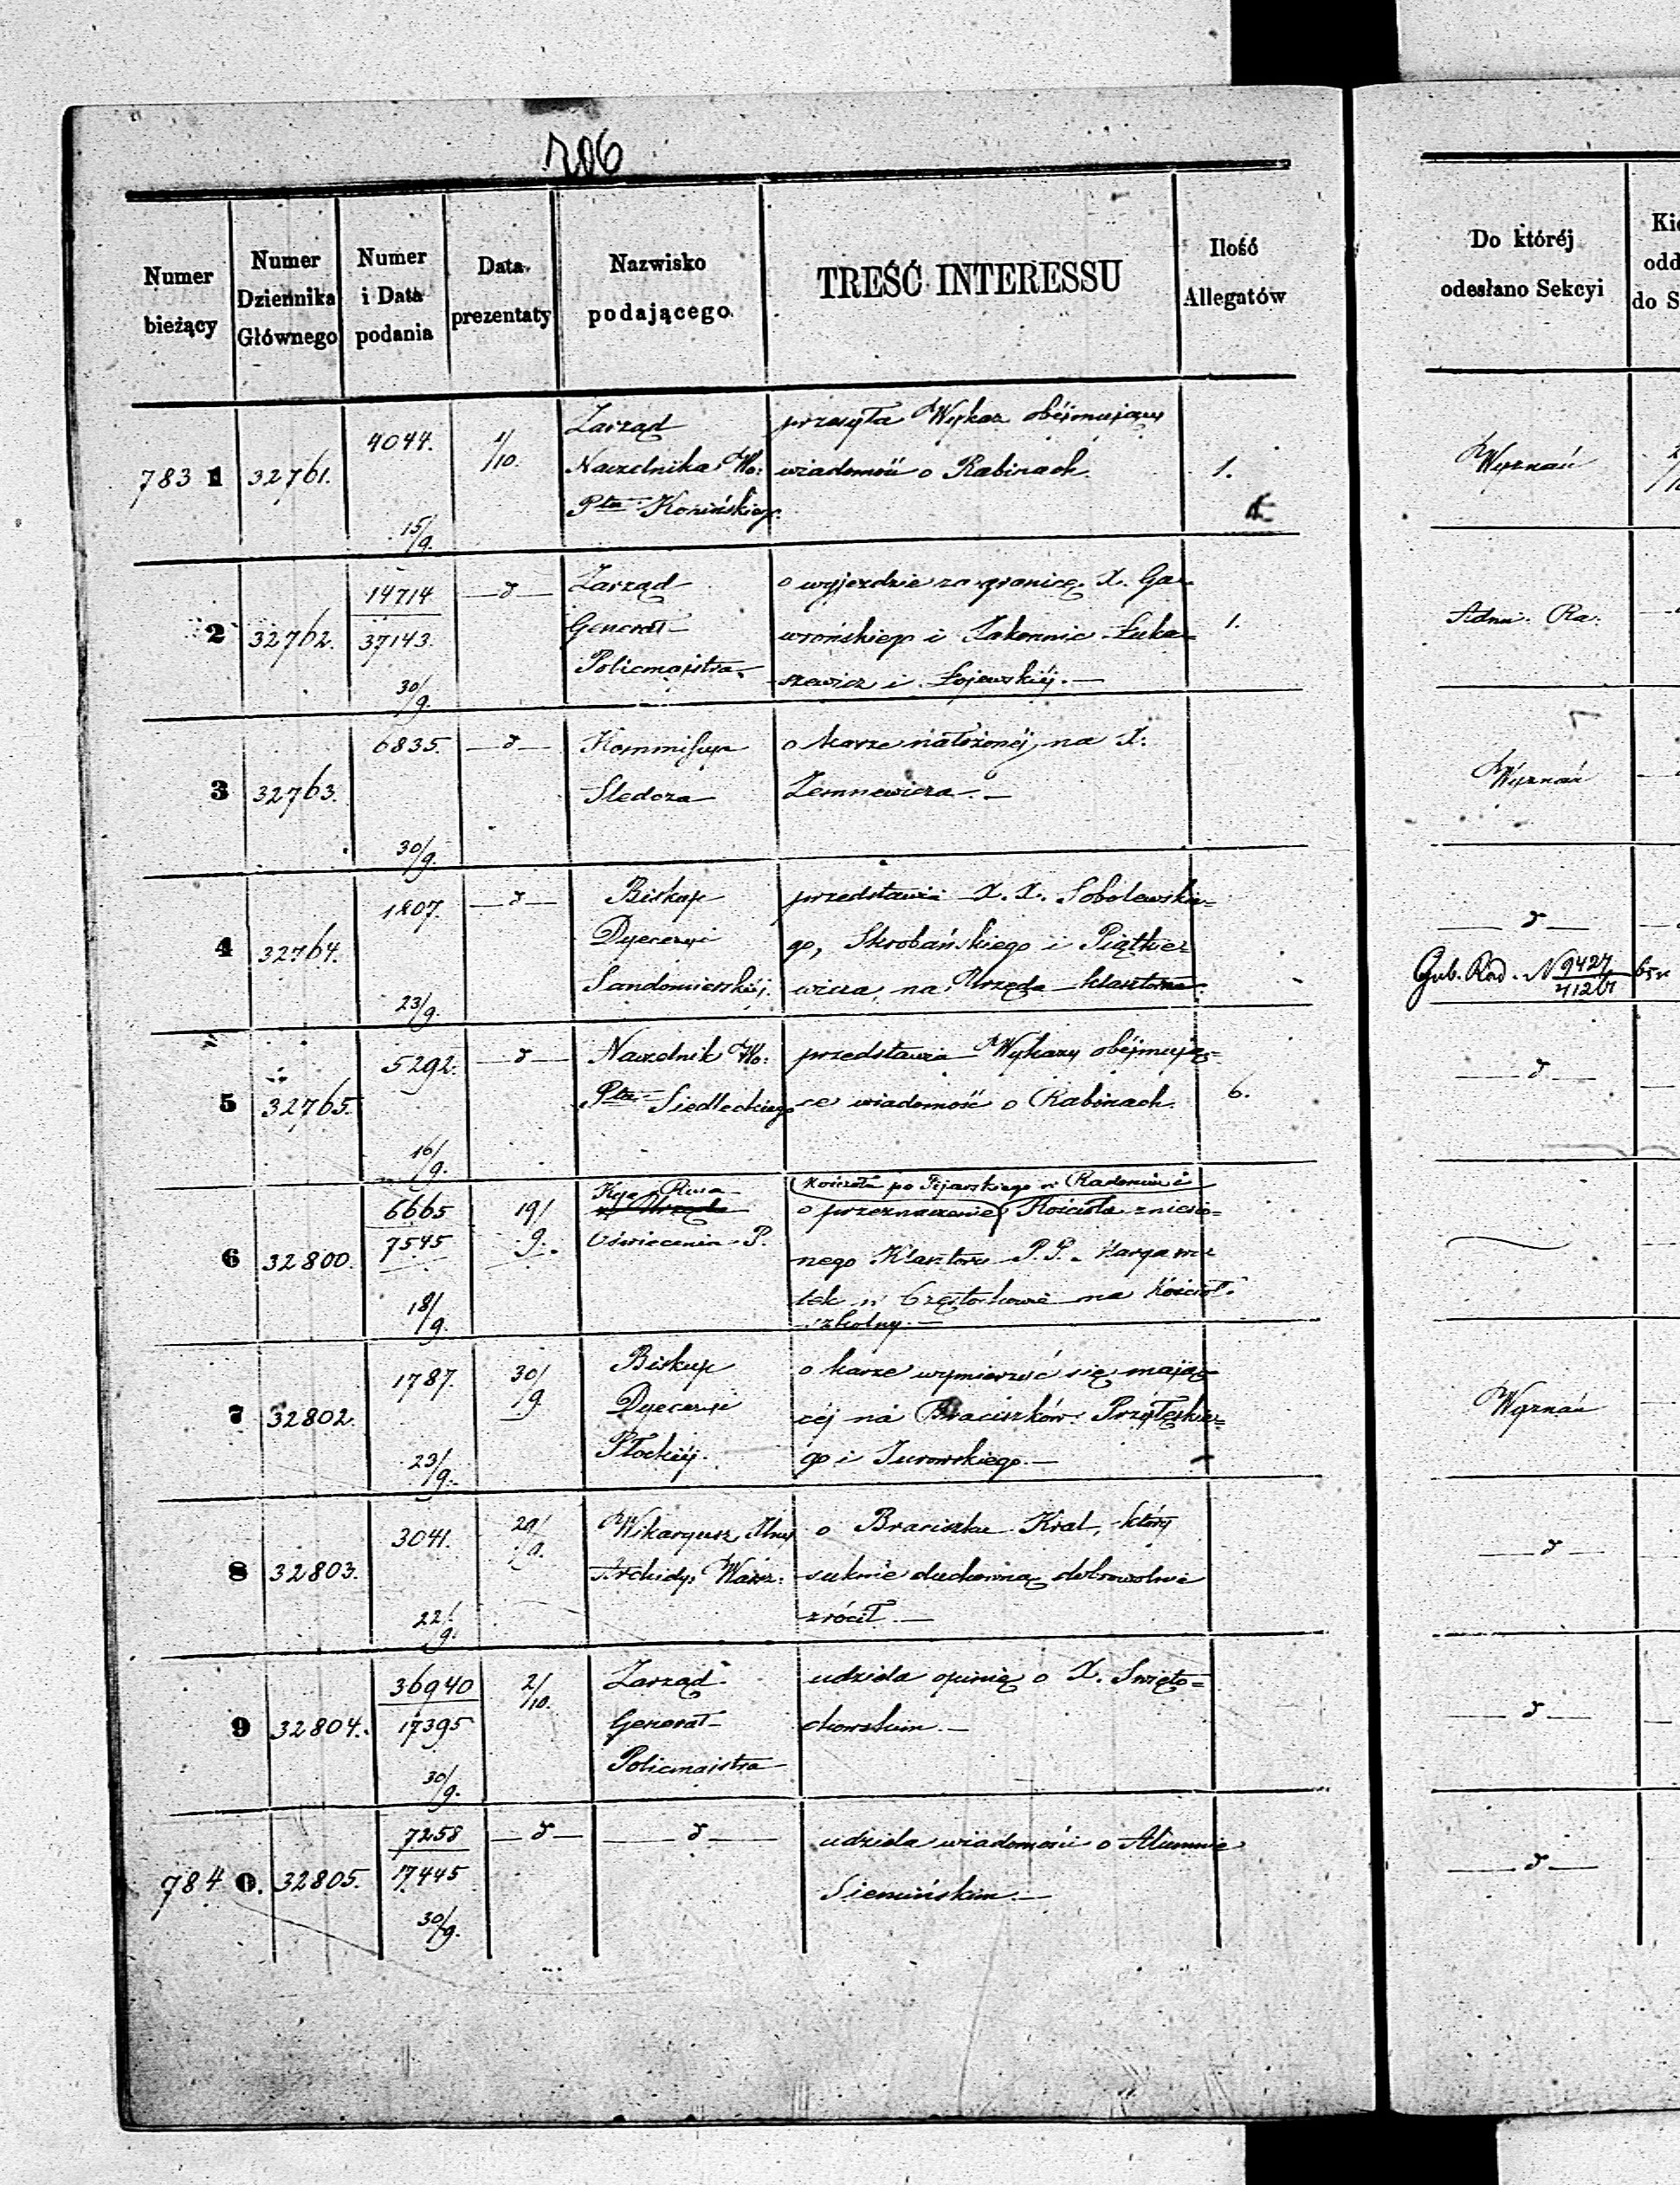 206
Numer bieżący
Numer Dziennika Głównego
Numer i Data podania
Data prezentaty
Nazwisko podającego
TREŚĆ INTERESSU
Ilość Allegatów
Do któréj odesłano Sekcyi
783 1
32761.
4044.
15/9.
1/10.
Zarząd
Naczelnika Wo:
Pta Konińskiego
przesyła Wykaz obéjmujący
wiadomość o Rabinach.
1.
Wyznań
2
32762.
14714
37143.
30/9.
d
Zarząd
Generał
Policmajstra
o wyjezdzie za granicę X. Ga
wrońskiego i Zakonnic Łuka=
szewicz i Łojewskiéj.
1.
Adm. Ra.
3
32763.
6835.
30/9.
d
Kommissya
Sledcza
o karze nałożonéj na X.
Zemnewicza.
Wyznań
4
32764.
1807.
23/9.
d
Biskup
Dyecezyi
Sandomierskiéj.
przedstawia X. X. Sobolewskie=
go, Skrobańskiego i Piątkie=
wicza, na Urzęda klasztorne.
d
Gub. Rad. N 9427
5
32765.
5292.
16/9.
d
Naczelnik Wo:
Pta Siedleckiego
przedstawia Wykazy obéjmują=
ce wiadomość o Rabinach.
6.
d
6
32800.
6665
7545
18/9.
19/9.
Oświecenia P.
Kościoła po Pijarskiego w Radomiu i
o przeznaczenie Kościoła zniesio=
nego Klasztoru P.P. Maryawi
tek w Częstochowie na Kościoł
szkolny.
7
32802.
1787.
23/9.
30/9.
Biskup
Dyecezyi
Płockiéj.
o karze wymierzyć się mają
céj na Braciszków Przyłęskie=
go i Jurowskiego.
Wyznań
8
32803.
3041.
22/9.
29/9.
Wikaryusz
Archidy. Warsz.
o Braciszku Kral, który
suknie duchowną dobrowolnie
zrócił.
d
9
32804.
36940
17395
30/9.
2/10.
Zarząd
Generał
Policmajstra
udziela opinię o X. Święto=
chowskim.
d
784 0.
32805.
7258
17445
30/9.
d
d
udziela wiadomości o Alumnie
Siemińskim.
d